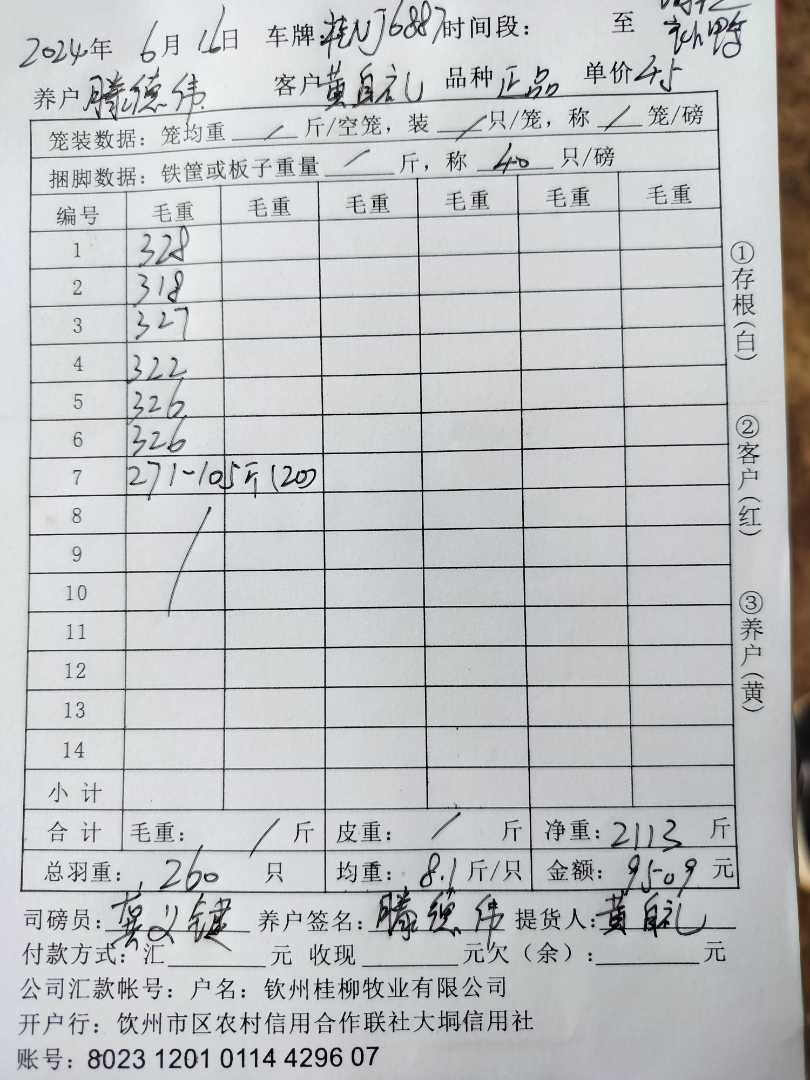 2024年 6月 16日 车牌: 桂NJ6887 时间段: 至
养户 滕德伟 客户 黄自礼 品种 正品 单价 4.5
笼装数据: 笼均重 / 斤/空笼, 装 / 只/笼, 称 / 笼/磅
捆脚数据: 铁筐或板子重量 / 斤, 称 40 只/磅
编号 毛重 毛重 毛重 毛重 毛重 毛重
1 328
2 318
3 327
4 322
5 326
6 326
7 271-105斤(20)
8
9
10
11
12
13
14
小计
合计 毛重: / 斤 皮重: / 斤 净重: 2113 斤
总羽重: 260 只 均重: 8.1 斤/只 金额: 9509 元
司磅员: 龚义键 养户签名: 滕德伟 提货人: 黄自礼
付款方式: 汇 元 收现 元欠(余): 元
公司汇款帐号: 户名: 钦州桂柳牧业有限公司
开户行: 饮州市区农村信用合作联社大垌信用社
账号: 8023 1201 0114 4296 07
①存根(白)
②客户(红)
③养户(黄)